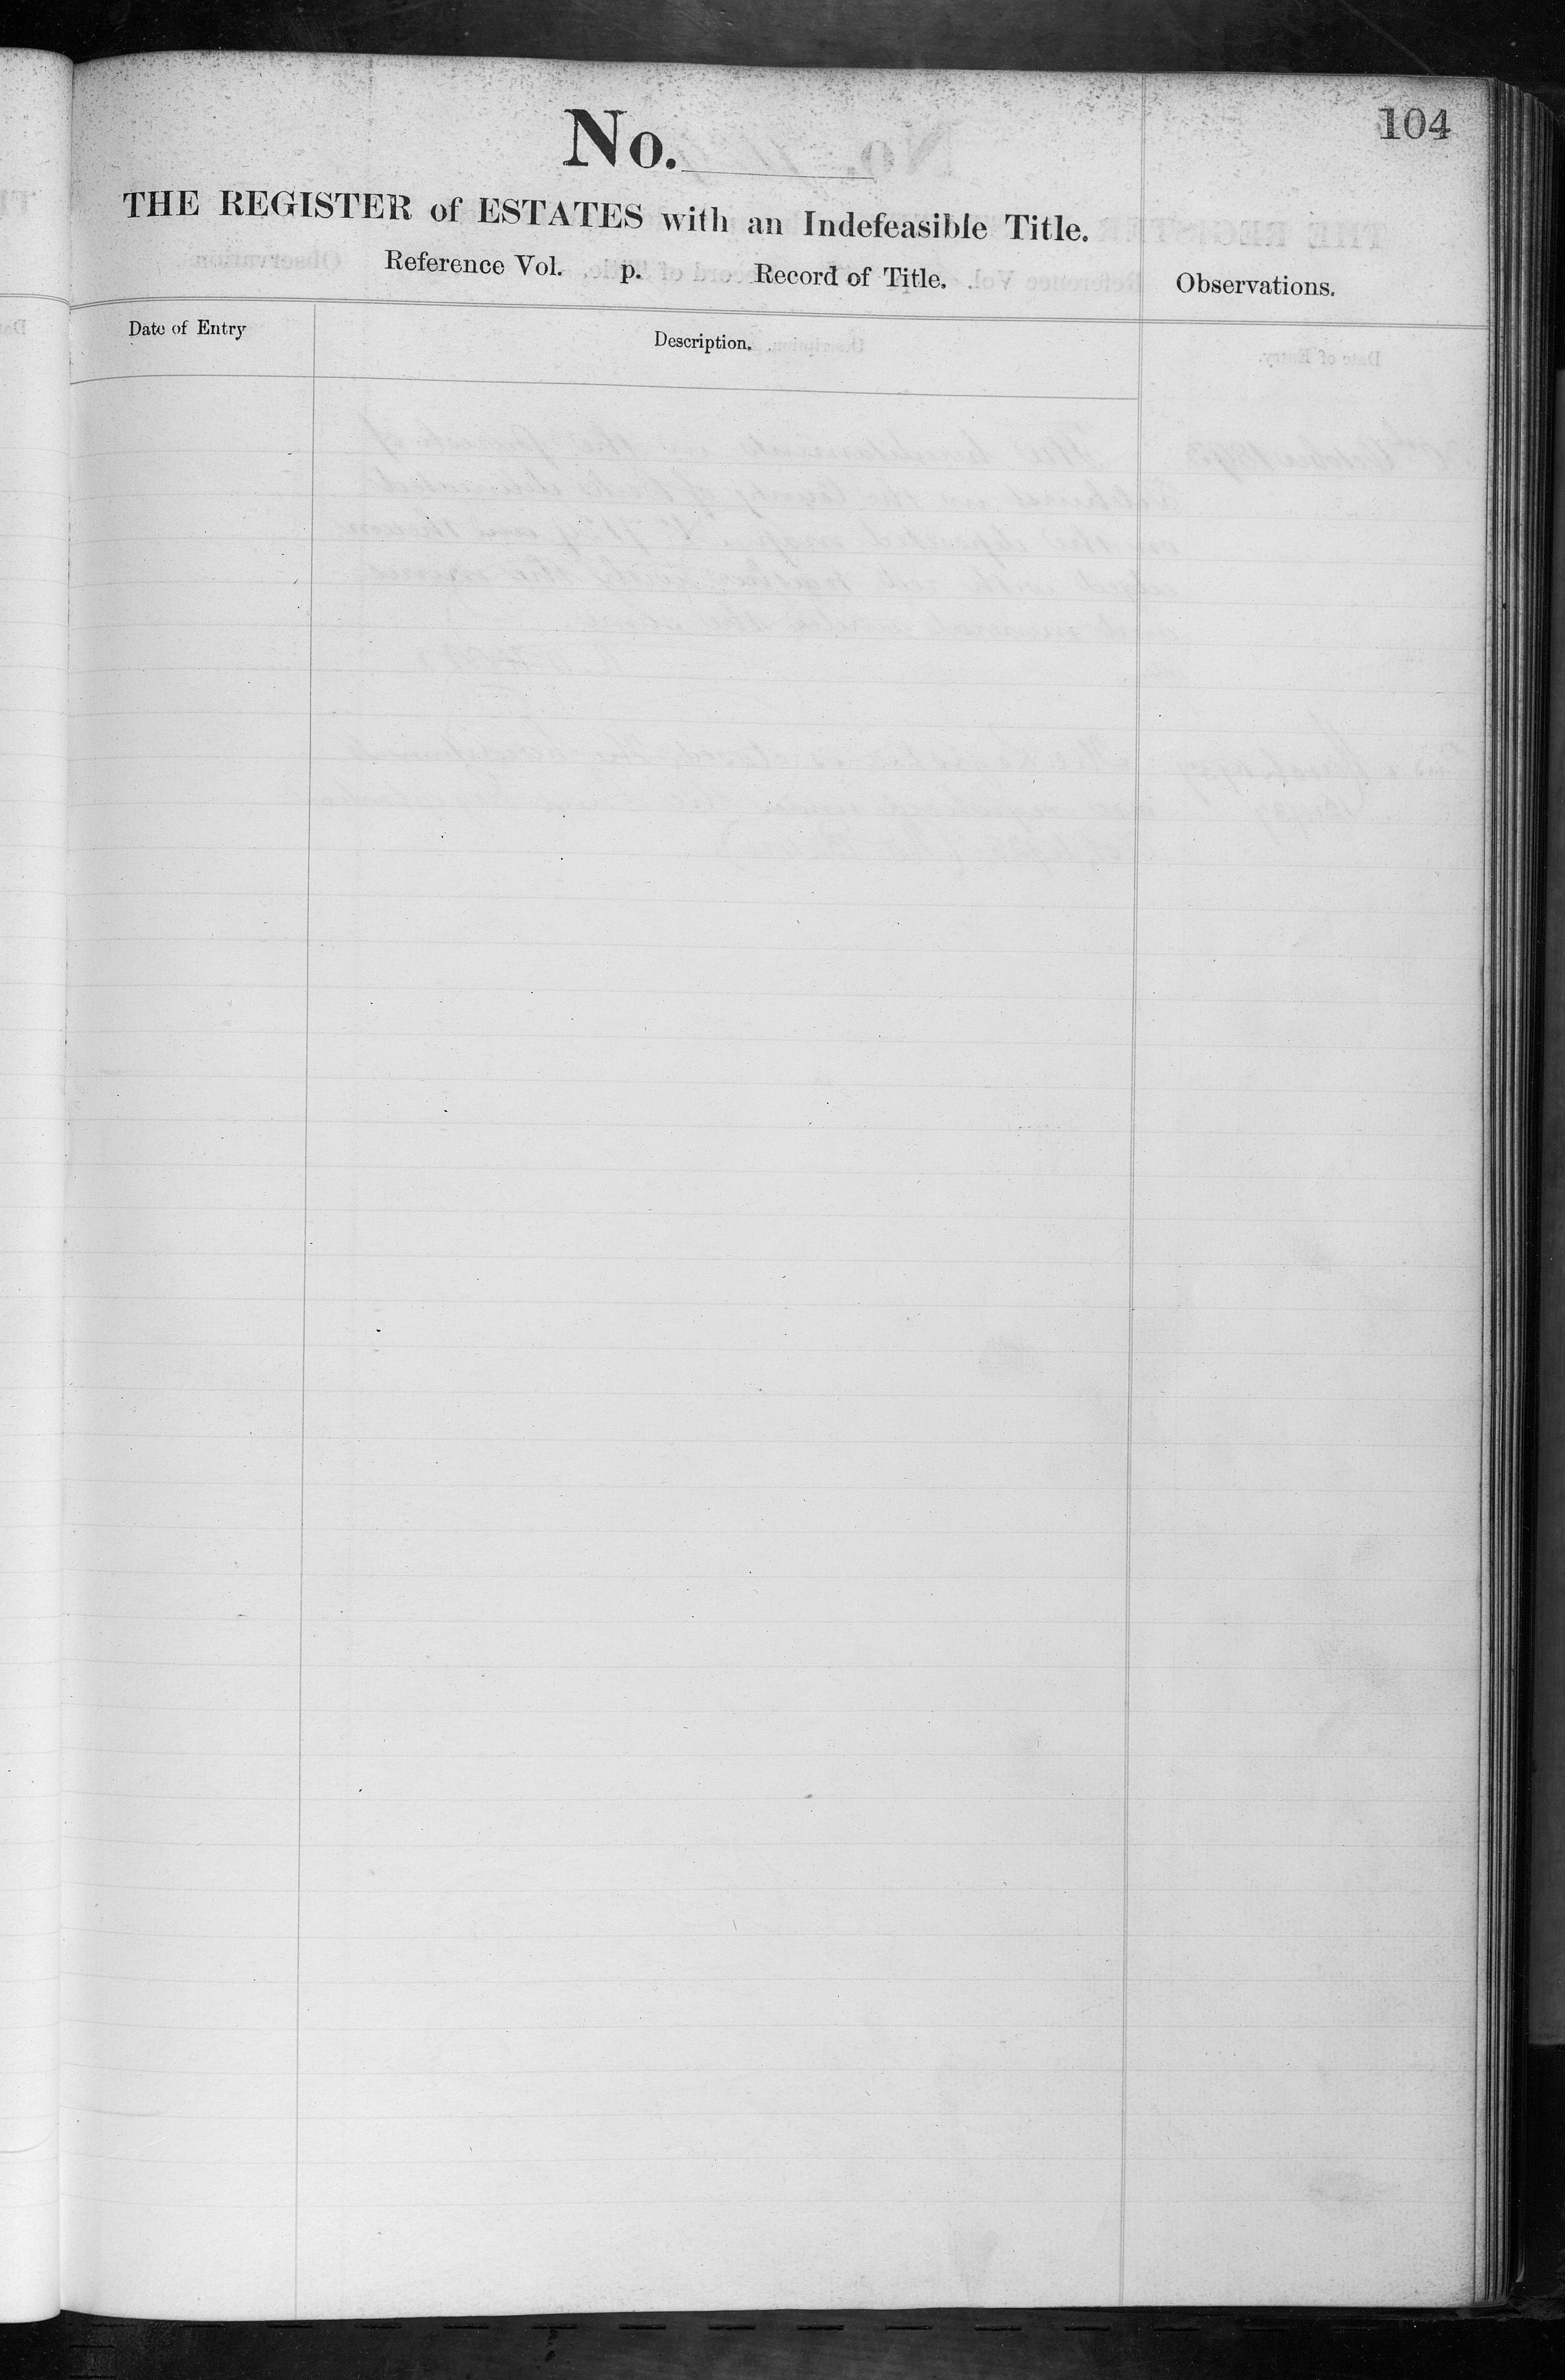 104
No.
THE REGISTER of ESTATES with an Indefeasible Title.
Reference Vol. p. Record of Title.
Observations.
Date of Entry
Description.